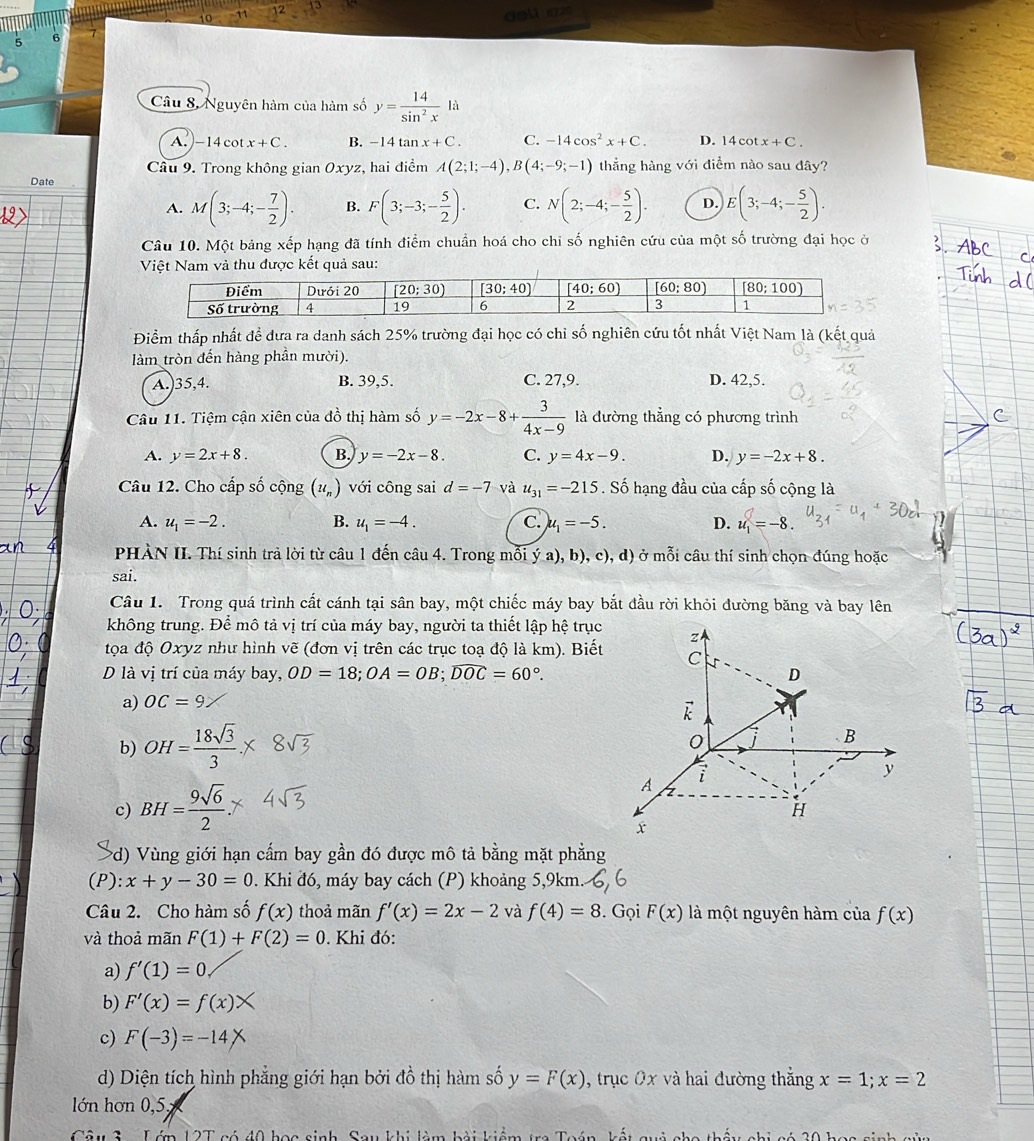 5 6 7 10 11 12 13
Câu 8. Nguyên hàm của hàm số y = 14/sin² x là
A. −14cot x + C. B. −14 tan x + C. C. −14cos² x + C. D. 14cot x + C.
Câu 9. Trong không gian Oxyz, hai điểm A(2;1;−4), B(4;−9;−1) thẳng hàng với điểm nào sau đây?
Date
A. M(3;−4;−7/2). B. F(3;−3;−5/2). C. N(2;−4;−5/2). D. E(3;−4;−5/2).
Câu 10. Một bảng xếp hạng đã tính điểm chuẩn hoá cho chỉ số nghiên cứu của một số trường đại học ở
Việt Nam và thu được kết quả sau:
3. ABC
Tính d(
Điểm Dưới 20 [20; 30) [30; 40) [40; 60) [60; 80) [80; 100)
Số trường 4 19 6 2 3 1
n = 35
Điểm thấp nhất để đưa ra danh sách 25% trường đại học có chỉ số nghiên cứu tốt nhất Việt Nam là (kết quả
làm tròn đến hàng phần mười).
A. 35,4. B. 39,5. C. 27,9. D. 42,5.
Câu 11. Tiệm cận xiên của đồ thị hàm số y = −2x − 8 + 3/(4x − 9) là đường thẳng có phương trình
C
A. y = 2x + 8. B. y = −2x − 8. C. y = 4x − 9. D. y = −2x + 8.
Câu 12. Cho cấp số cộng (uₙ) với công sai d = −7 và u₃₁ = −215. Số hạng đầu của cấp số cộng là
A. u₁ = −2. B. u₁ = −4. C. u₁ = −5. D. u₁ = −8.
u₃₁ = u₁ + 30d
PHẦN II. Thí sinh trả lời từ câu 1 đến câu 4. Trong mỗi ý a), b), c), d) ở mỗi câu thí sinh chọn đúng hoặc
sai.
Câu 1. Trong quá trình cất cánh tại sân bay, một chiếc máy bay bắt đầu rời khỏi đường băng và bay lên
không trung. Để mô tả vị trí của máy bay, người ta thiết lập hệ trục
tọa độ Oxyz như hình vẽ (đơn vị trên các trục toạ độ là km). Biết
D là vị trí của máy bay, OD = 18; OA = OB; DOC = 60°.
a) OC = 9
b) OH = 18√3/3. × 8√3
c) BH = 9√6/2. × 4√3
z
C
D
k
O
j
B
y
i
A
H
x
(3a)²
√3 a
d) Vùng giới hạn cấm bay gần đó được mô tả bằng mặt phẳng
(P): x + y − 30 = 0. Khi đó, máy bay cách (P) khoảng 5,9km. 6,6
Câu 2. Cho hàm số f(x) thoả mãn f'(x) = 2x − 2 và f(4) = 8. Gọi F(x) là một nguyên hàm của f(x)
và thoả mãn F(1) + F(2) = 0. Khi đó:
a) f'(1) = 0.
b) F'(x) = f(x) ×
c) F(−3) = −14 ×
d) Diện tích hình phẳng giới hạn bởi đồ thị hàm số y = F(x), trục Ox và hai đường thẳng x = 1; x = 2
lớn hơn 0,5. ×
Câu 3. Lớp 12T có 40 học sinh. Sau khi làm bài kiểm tra Toán, kết quả cho thấy chỉ có 30 học sinh của